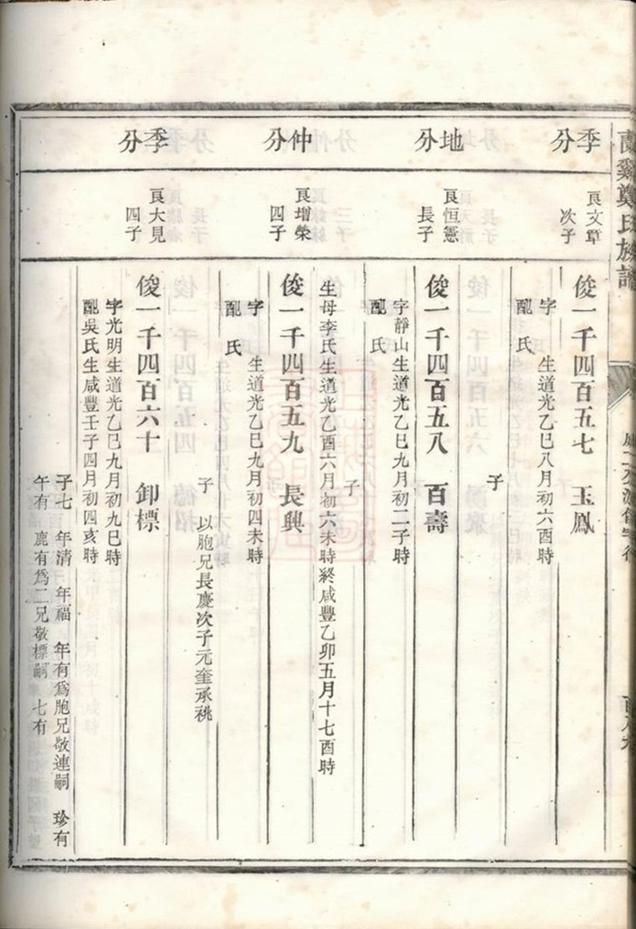 蘭谿鄭氏族譜
季分
良文章
次子
俊一千四百五七　玉鳳
字　　生道光乙巳八月初六酉時
配　氏
子
地分
良恒憲
長子
俊一千四百五八　百壽
字靜山生道光乙巳九月初二子時
配　氏
子
仲分
良增榮
四子
生母李氏生道光乙酉六月初六未時終咸豐乙卯五月十七酉時
俊一千四百五九　長興
字　　生道光乙巳九月初四未時
配　氏
子　以胞兄長慶次子元奎承祧
季分
良大見
四子
俊一千四百六十　卸標
字光明生道光乙巳九月初九巳時
配吳氏生咸豐壬子四月初四亥時
子七　年清　年福　年有爲胞兄敬連嗣　珍有
午有　鹿有爲二兄敬標嗣　七有